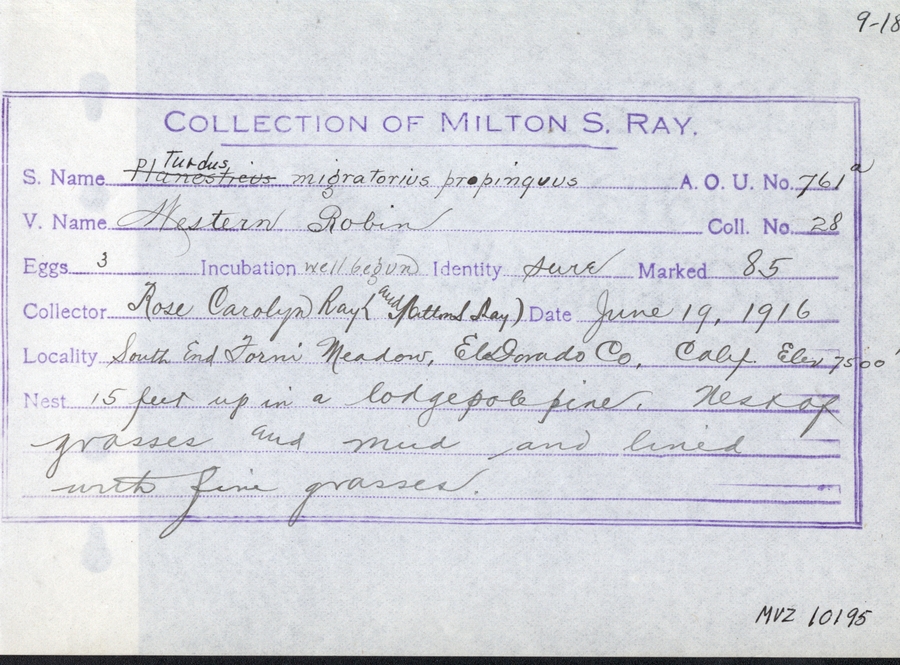 9-18
COLLECTION OF MILTON S. RAY.
Turdus
S. Name Planesticus migratorius propinquus A. O. U. No. 761a
V. Name Western Robin Coll. No. 28
Eggs 3 Incubation well begun Identity sure Marked 85
Collector Rose Carolyn Ray (and Milton S Ray) Date June 19, 1916
Locality South End Forni Meadow, El Dorado Co, Calif. Elev 7500'
Nest 15 feet up in a lodgepole pine. Nest of
grasses and mud and lined
with fine grasses.
MVZ 10195